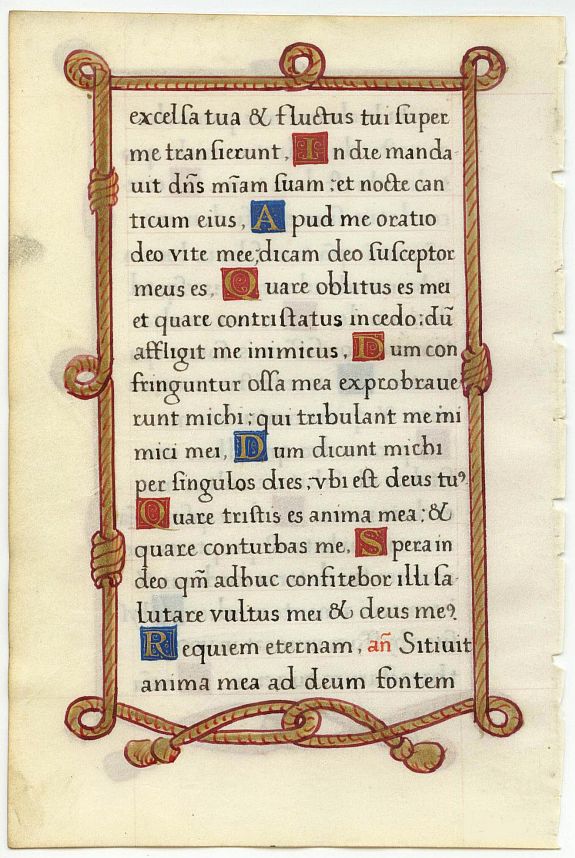 excelsa tua & fluctus tui super
me transierunt, In die manda
uit dn̄s mīam suam : et nocte can
ticum eius, Apud me oratio
deo vite mee; dicam deo susceptor
meus es, Quare oblitus es mei
et quare contristatus incedo; dū
affligit me inimicus, Dum con
fringuntur ossa mea exprobraue
runt michi; qui tribulant me ini
mici mei, Dum dicunt michi
per singulos dies; vbi est deus tuꝰ
Quare tristis es anima mea : &
quare conturbas me, Spera in
deo qm̄ adhuc confitebor illi sa-
lutare vultus mei & deus meꝰ.
Requiem eternam, an̄ Sitiuit
anima mea ad deum fontem